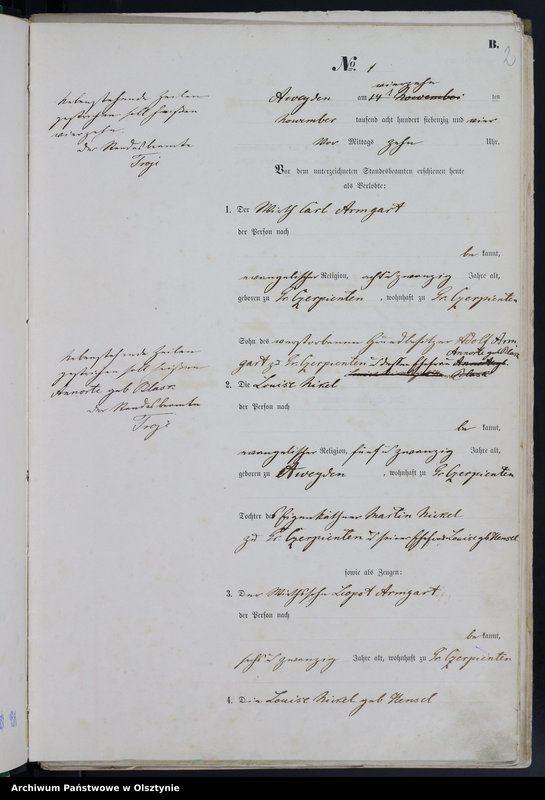 B.
2
No. 1
Aweyden am 14t November vierzehn ten
November tausend acht hundert siebenzig und vier
Vor Mittags zehn Uhr.
Nebenstehende Zeilen
gestrichen soll heißen
vierzehn.
der Standesbeamte
Vor dem unterzeichneten Standesbeamten erschienen heute
als Verlobte:
1. Der Wirth Carl Armgart
der Person nach
be kannt,
evangelischer Religion, acht u zwanzig Jahre alt,
geboren zu Gr. Czerpienten, wohnhaft zu Gr. Czerpienten
Sohn des verstorbenen Grundbesitzer Adolf Arm
gart zu Gr. Czerpienten u dessen Ehefrau
Nebenstehende Zeilen
gestrichen soll heißen
geb
der Standesbeamte
2. Die Louise Nickel
der Person nach
be kannt,
evangelischer Religion, fünf u zwanzig Jahre alt,
geboren zu Aweyden, wohnhaft zu Gr. Czerpienten
Tochter des Eigenkäthner Martin Nickel
zu Gr. Czerpienten u seiner Ehefrau Louise geb Hensel
sowie als Zeugen:
3. Der Wirthssohn Armgart
der Person nach
be kannt,
sechs u zwanzig Jahre alt, wohnhaft zu Gr. Czerpienten
4. Die Louise Nickel geb Hensel
Archiwum Państwowe w Olsztynie